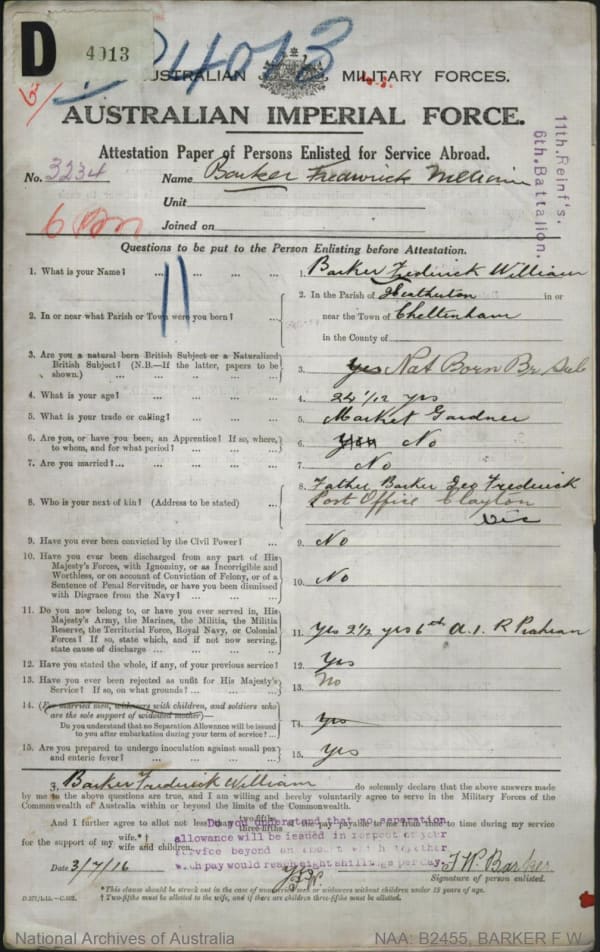 D
4913
24013
AUSTRALIAN MILITARY FORCES.
AUSTRALIAN IMPERIAL FORCE.
Attestation Paper of Persons Enlisted for Service Abroad.
11th. Reinf's.
6th. Battalion.
No. 3234 Name Barker Fredrick William
Unit
Joined on
Questions to be put to the Person Enlisting before Attestation.
1. What is your Name? ... ... ... ... 1. Barker Fredrick William
2. In or near what Parish or Town were you born? ... 2. In the Parish of Heatherton in or
near the Town of Cheltenham
in the County of
3. Are you a natural born British Subject or a Naturalized
British Subject? (N.B.—If the latter, papers to be
shown.) ... ... ... ... ... 3. Yes Nat Born Br Sub
4. What is your age? ... ... ... ... 4. 24 1/12 yrs
5. What is your trade or calling? ... ... ... 5. Market Gardner
6. Are you, or have you been, an Apprentice? If so, where,
to whom, and for what period? ... ... ... 6. Yes No
7. Are you married? ... ... ... ... 7. No
8. Who is your next of kin? (Address to be stated) ... 8. Father Barker Geo Fredrick
Post Office Clayton
Vic
9. Have you ever been convicted by the Civil Power? ... 9. No
10. Have you ever been discharged from any part of His
Majesty's Forces, with Ignominy, or as Incorrigible and
Worthless, or on account of Conviction of Felony, or of a
Sentence of Penal Servitude, or have you been dismissed
with Disgrace from the Navy? ... ... ... 10. No
11. Do you now belong to, or have you ever served in, His
Majesty's Army, the Marines, the Militia, the Militia
Reserve, the Territorial Force, Royal Navy, or Colonial
Forces? If so, state which, and if not now serving,
state cause of discharge ... ... ... 11. Yes 2½ yrs 6th A.I.R Prahran
12. Have you stated the whole, if any, of your previous service? 12. Yes
13. Have you ever been rejected as unfit for His Majesty's
Service? If so, on what grounds? ... ... 13. No
14. (For married men, widowers with children, and soldiers who
are the sole support of widowed mother)—
Do you understand that no Separation Allowance will be issued
to you after embarkation during your term of service? ... 14. Yes
15. Are you prepared to undergo inoculation against small pox
and enteric fever? ... ... ... ... 15. Yes
I, Barker Fredrick William do solemnly declare that the above answers made
by me to the above questions are true, and I am willing and hereby voluntarily agree to serve in the Military Forces of the
Commonwealth of Australia within or beyond the limits of the Commonwealth.
And I further agree to allot not less than two-fifths three-fifths of the pay payable to me from time to time during my service
for the support of my wife.*† wife and children.
Do you understand that no separation
allowance will be issued in respect of your
service beyond an amount which together
with pay would reach eight shillings per day.
Yes
Date 3/7/16 F W Barker
Signature of person enlisted.
*This clause should be struck out in the case of unmarried men or widowers without children under 18 years of age.
† Two-fifths must be allotted to the wife, and if there are children three-fifths must be allotted.
National Archives of Australia NAA: B2455, BARKER F W